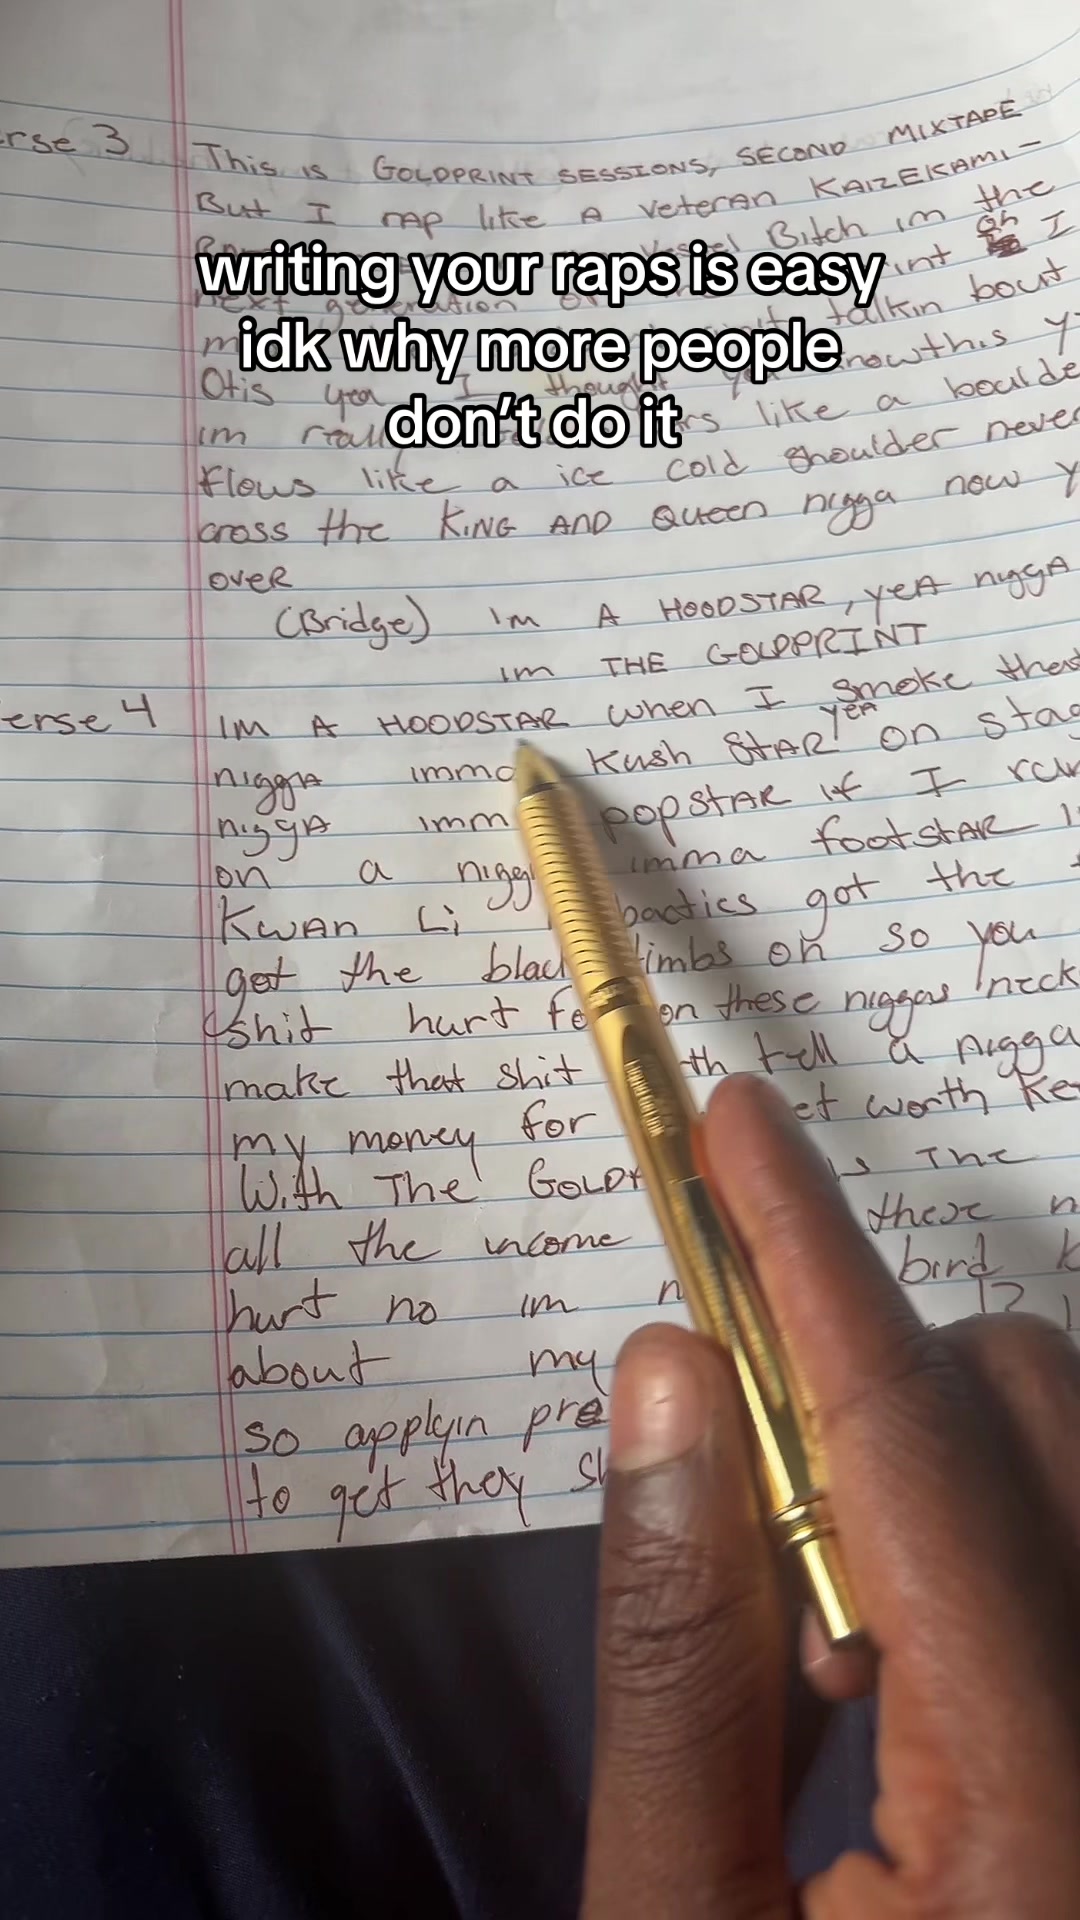 writing your raps is easy
idk why more people
don't do it
rse 3 This is GOLDPRINT SESSIONS, SECOND MIXTAPE
But I rap like A veteran KAIZEKAMI-
Bitch im the
next generation oh I
talkin bout
Otis yea I thought this
im like a boulde
flows like a ice cold shoulder never
cross the KING AND Queen nigga now y
oveR
(Bridge) Im A HOODSTAR, yeA niggA
im THE GOLDPRINT
erse 4 IM A HOODSTAR when I smoke that
niggA imma Kush STAR yeA on stag
niggA imm popSTAR if I run
on a nigg imma footSTAR
KWAN Li got the
get the blac timbs on so you
shit hurt on these niggas neck
make that shit tell a nigga
my money for et worth Ke
With The GOLD is The
all the income these n
hurt no im n bird
about my
so applyin pre
to get they sh